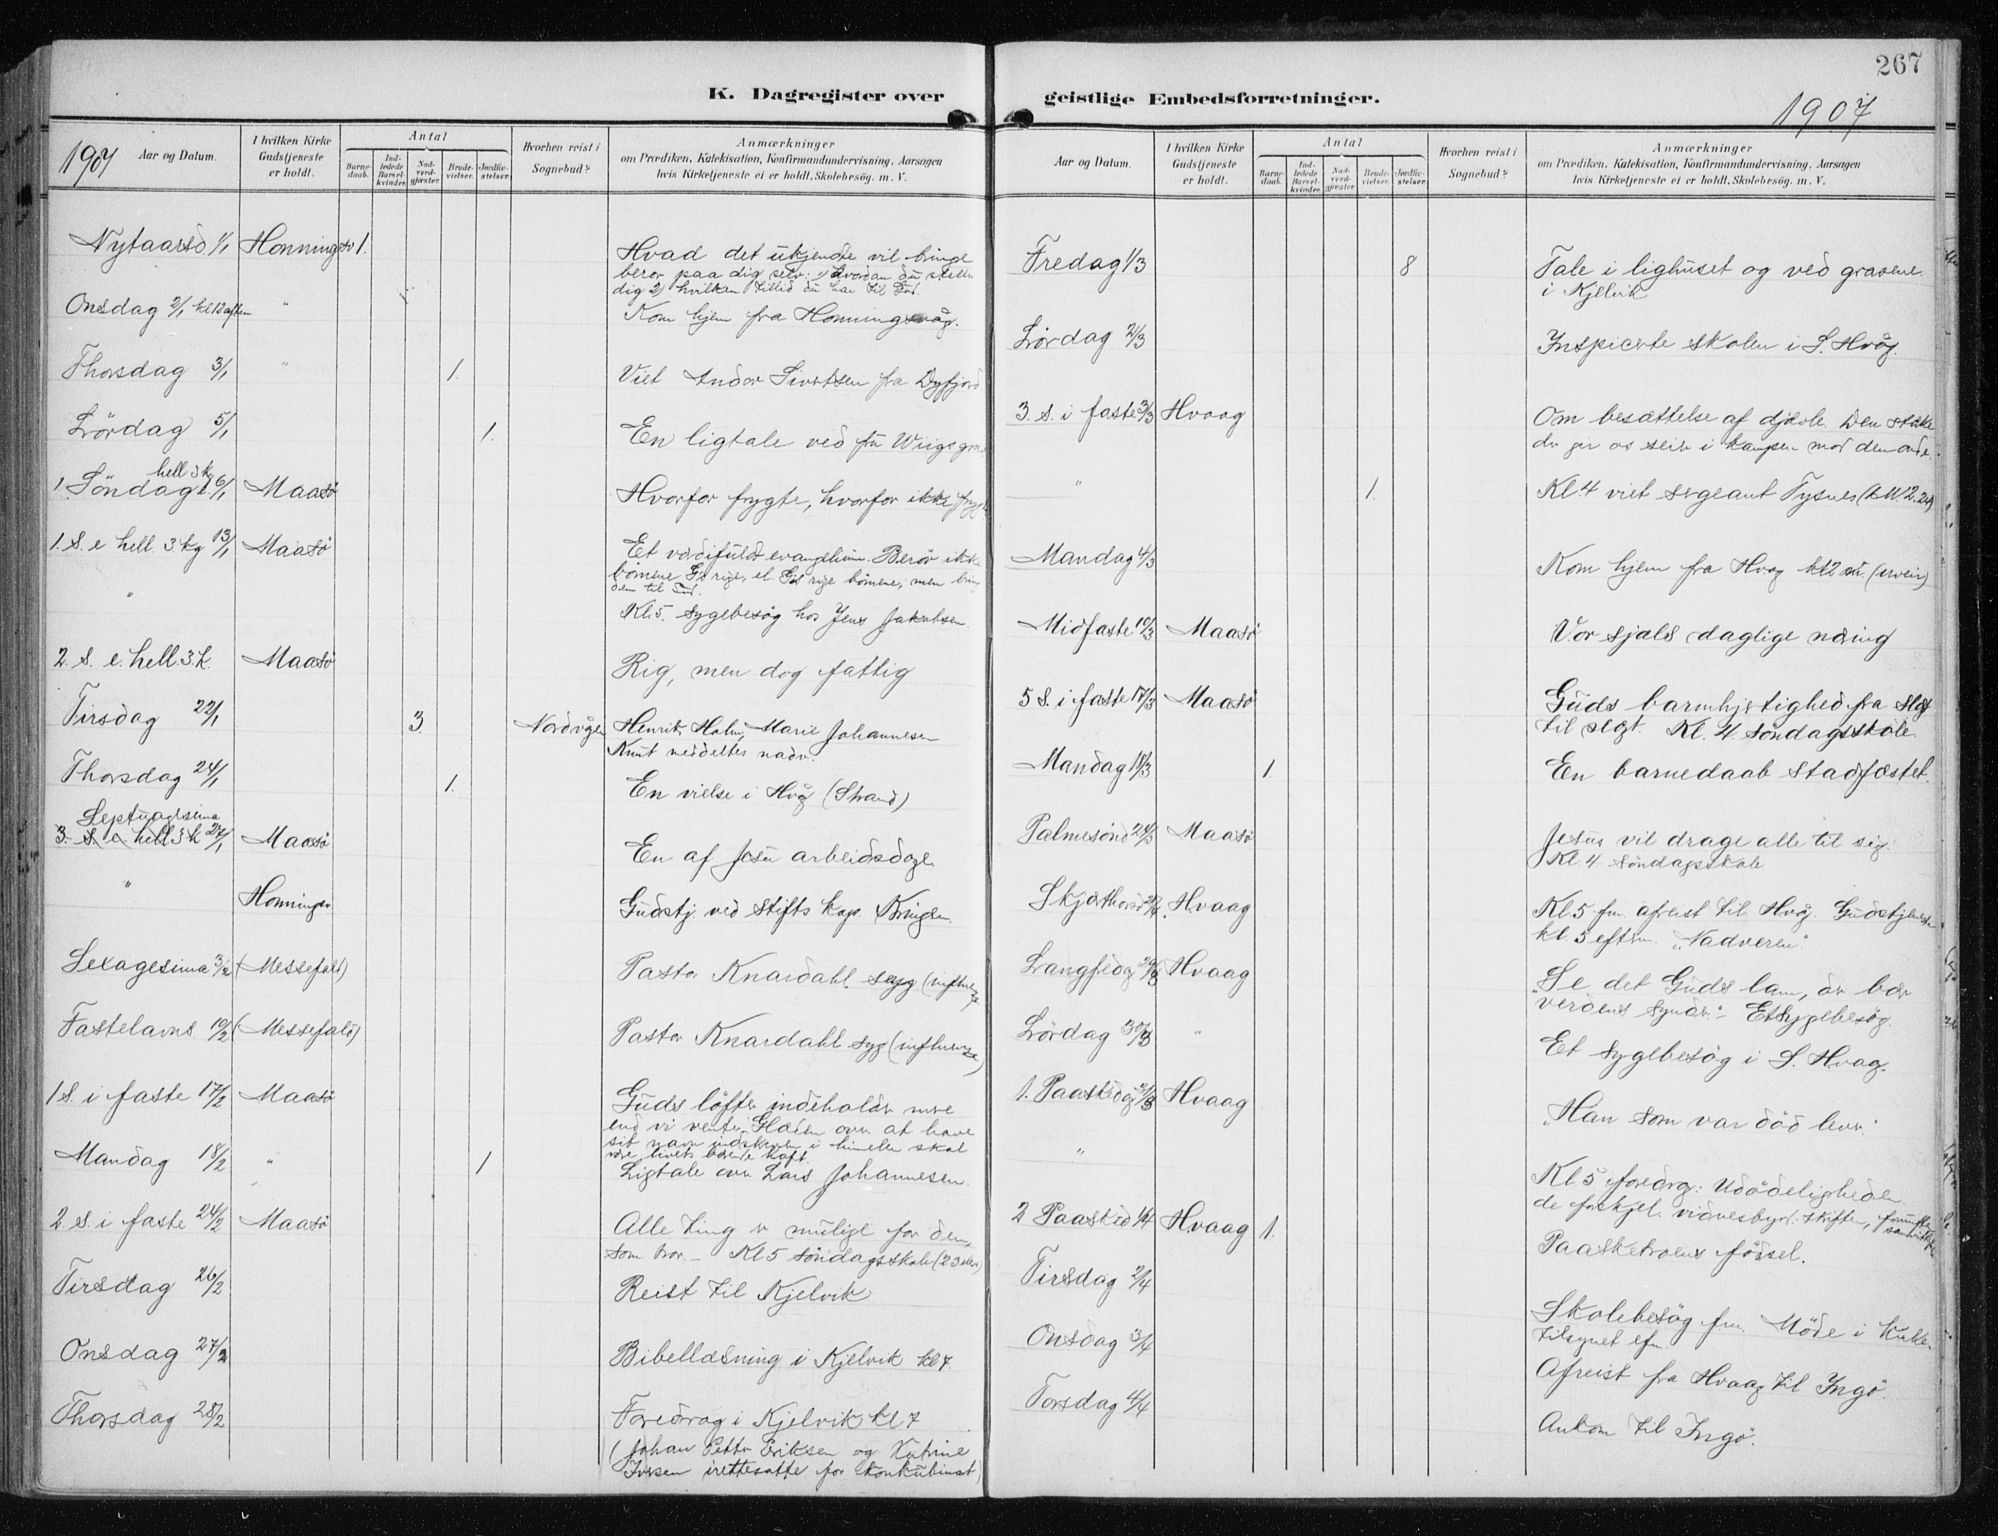 267
K. Dagregister over
geistlige Embedsforretninger.
1907
1907
Aar og Datum.
I hvilken Kirke Gudstjeneste er holdt.
Antal
Barnedaab.
Indledede Barselkvinder.
Nadverdgjæster.
Brudevielser.
Jordfæstelser.
Hvorhen reist i Sognebud?
Anmærkninger
om Prædiken, Katekisation, Konfirmandundervisning, Aarsagen
hvis Kirketjeneste ei er holdt, Skolebesøg. m. V.
Nytaarsd. 1/1 Honningsv 1.
Hvad det ukjendte vil bringe
beror paa dig selv: 1) Hvordan du stiller
dig 2) hvilken tillid du har til Gud.
Onsdag 2/1 "
Kom hjem fra Honningsvåg.
Thorsdag 3/1 " 1. Viet Andor Sivertsen fra Dyfjord
Lördag 5/1 1. En ligtale ved fru Wiigs grav
hell 3 kg
1. Söndag 6/1 Maasö Hvorfor frygte, hvorfor ikke frygte
1. S. e hell 3 kg 13/1 Maasö Et værdifuldt evangelium. Beror ikke
börnene Gs rige, el. Gs rige börnene, men bring
dem til Gud.
" Kl 5. Sygebesög hos Jens Jakobsen.
2. S. e. hell. 3 k. Maasö Rig, men dog fattig
Tirsdag 22/1 3. Nordvågen Henrik, Holm, Marie Johannesen
Knut meddeltes nadv.
Thorsdag 24/1 1. En vielse i Hvåg (Strand)
Septuagesima
3. S. e. hell 3 k 27/1 Maasö En af Jesu arbeidsdage
" Honningsv. Gudstj. ved Stifts kap. Kringen
Sexagesima 3/2 (Messefald) Pastor Knardahl syg (influenza)
Fastelavns 10/2 (Messefald) Pastor Knardahl syg (influenza)
1 S. i faste 17/2 Maasö Guds löfter indeholder mere
end vi venter. Glæden over at have
sit navn indskreven i himelen skal
Mandag 18/2 " 1 Ligtale over Lars Johannesen.
2. S. i faste 24/2 Maasö Alle ting er mulige for den,
som tror. – Kl 5 Söndagsskole (23 elev)
Tirsdag 26/2 Reist til Kjelvik
Onsdag 27/2 Bibellæsning i Kjelvik kl 7.
Thorsdag 28/2 Foredrag i Kjelvik kl 7
(Johan Petter Eriksen og Katrine
Iversen irettesatte for konkubinat)
Aar og Datum.
I hvilken Kirke Gudstjeneste er holdt.
Antal
Barnedaab.
Indledede Barselkvinder.
Nadverdgjæster.
Brudevielser.
Jordfæstelser.
Hvorhen reist i Sognebud?
Anmærkninger
om Prædiken, Katekisation, Konfirmandundervisning, Aarsagen
hvis Kirketjeneste ei er holdt, Skolebesøg. m. V.
Fredag 1/3 8 Tale i lighuset og ved gravene
i Kjelvik
Lördag 2/3 Inspicerte skolen i S. Hvåg.
3. S. i faste 3/3 Hvaag Om besættelse af djævle. Den stærke
der gir os seir i kampen mod den onde.
" 1. Kl. 4 viet sergeant Tysnes
Mandag 4/3 Kom hjem fra Hvag
Midfaste 10/3 Maasö Vor sjæls daglige næring
5 S. i faste 17/3 Maasö Guds barmhjertighed fra slegt
til slegt. Kl. 4. Söndagsskole
Mandag 18/3 1. En barnedaab stadfæstet.
Palmesönd 24/3 Maasö Jesus vil drage alle til sig.
Kl. 4 söndagsskole
Skjærthorsd Hvaag Kl 5 fm. afreist til Hvåg. Gudstjeneste
kl 5 eftm. „Nadveren".
Langfredag 29/3 Hvaag „Se det Guds lam, der bær
verdens synder" – Et sygebesög.
Lördag 30/3 " Et sygebesög i S. Hvag.
1. Paaskedag 31/3 Hvaag „Han som var död lever."
" Kl 5 foredrag: Udödeligheden.
de forskjel. vidnesbyrd. skriften,
2 Paasked 1/4 Hvaag 1. Paasketroens födsel.
Tirsdag 2/4 Skolebesög fm. Möde i
tilsynet efm.
Onsdag 3/4 Afreist fra Hvaag til Ingö.
Torsdag 4/4 Ankom til Ingö.